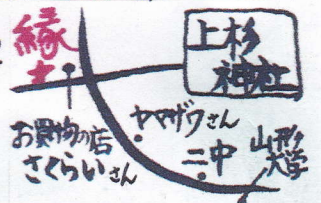 縁
土
上杉
神社
お買物の店
さくらいさん
ヤマザワさん
二中
山形
大学